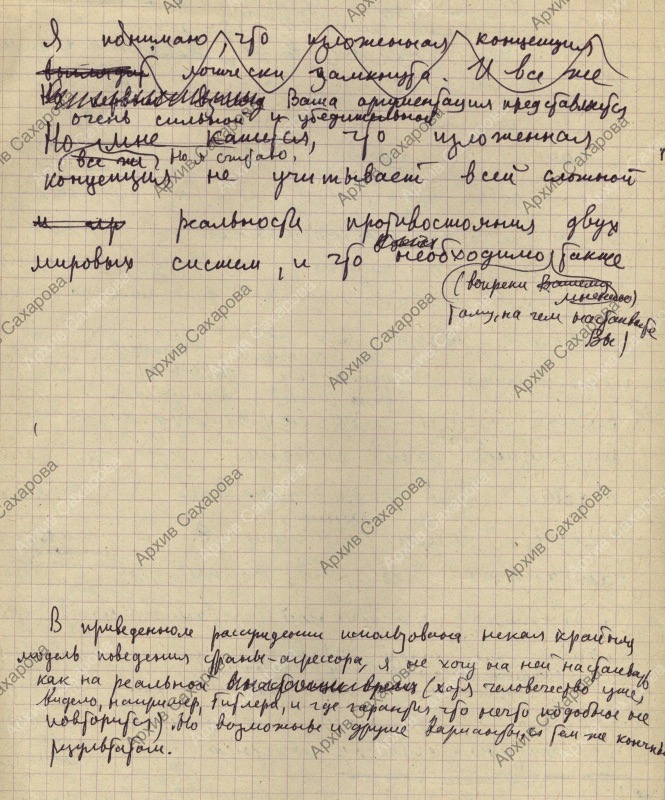 Я понимаю, что изложенная концепция
выглядит логически замкнута. И все же
Ваша аргументация представляется
очень сильной и убедительной
Но мне кажется, что изложенная
(все же) Но я считаю,
концепция не учитывает всей сложной
реальности противостояния двух
мировых систем, и что необходимо также
(вопреки Вашему
мнению)
тому, на чем настаиваете
Вы)
В приведенном рассуждении использована некая крайняя
модель поведения страны-агрессора, я не хочу на ней настаивать
как на реальной в настоящее время (хотя человечество уже
видело, например, Гитлера, и где гарантия что нечто подобное не
повторится). Но возможны и другие варианты с тем же конечным
результатом.
Архив Сахарова